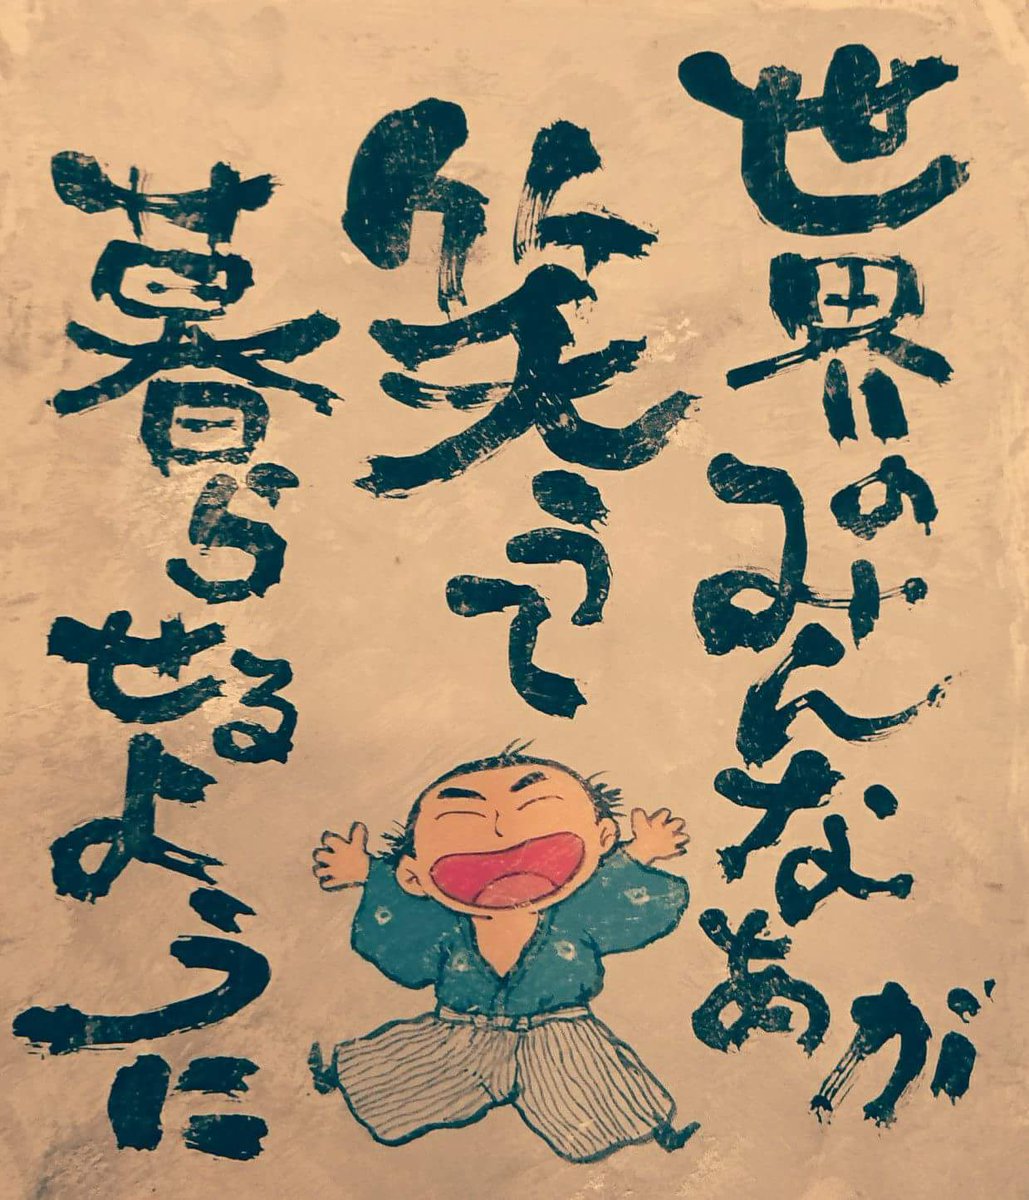 世界のみんなあが
笑うて
暮らせるように